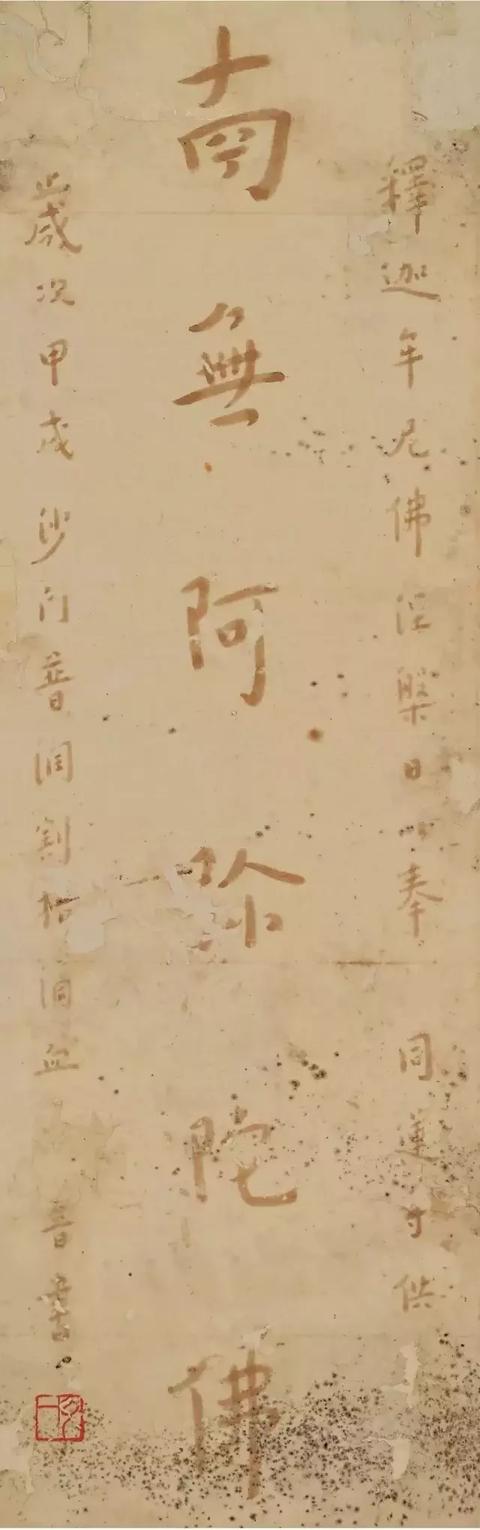 釋迦牟尼佛涅槃日以奉
同蓮供
南無阿弥陀佛
歲次甲戌沙門普润割指血
音書